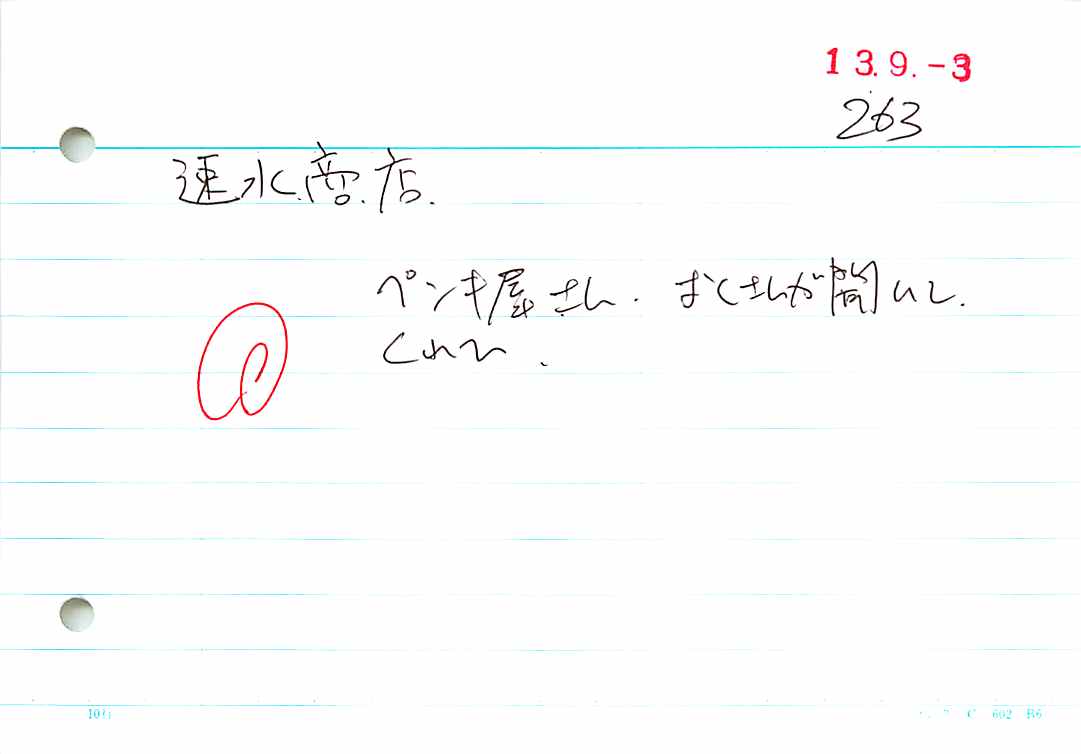 13.9.-3
263
速水商店.
ペンキ屋さん. おくさんが聞いて.
くれた.
10行
C 602 B6